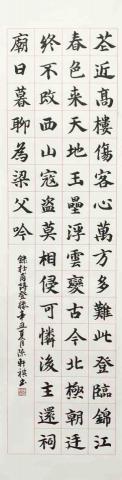 花近高樓傷客心萬方多難此登臨錦江
春色來天地玉壘浮雲變古今北極朝廷
終不改西山寇盜莫相侵可憐後主還祠
廟日暮聊為梁父吟
錄杜甫詩登樓辛丑夏月陳軒祺書